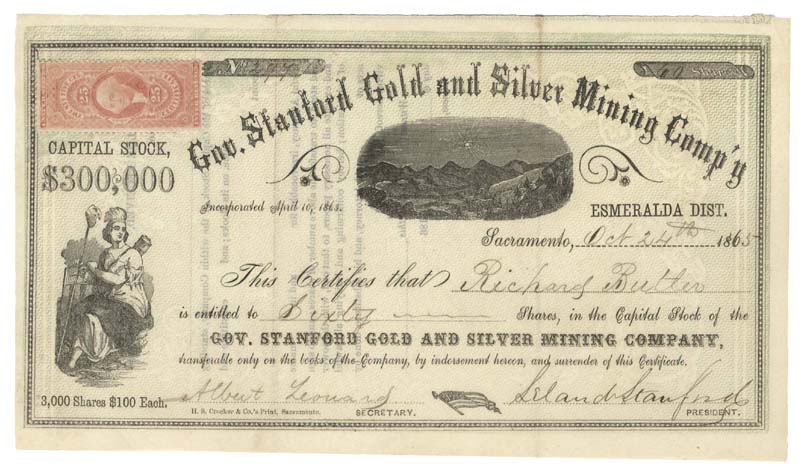 25 25
No. 294
60 Shares
Gov. Stanford Gold and Silver Mining Comp'y
CAPITAL STOCK,
$300,000
Incorporated April 10, 1863.
ESMERALDA DIST.
Sacramento, Oct 24th 1865
This Certifies that Richard Butler
is entitled to Sixty Shares, in the Capital Stock of the
GOV. STANFORD GOLD AND SILVER MINING COMPANY,
transferable only on the books of the Company, by indorsement hereon, and surrender of this Certificate.
3,000 Shares $100 Each.
Albert Leonard
Leland Stanford
H. S. Crocker & Co.'s Print, Sacramento.
SECRETARY.
PRESIDENT.